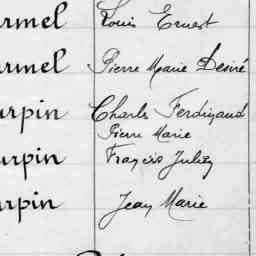 armel Louis Ernest
armel Pierre Marie Désiré
urpin Charles Ferdinand
Pierre Marie
urpin François Julien
urpin Jean Marie